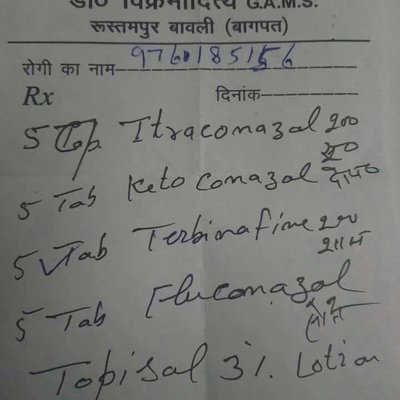 डा० विक्रमादित्य G.A.M.S.
रूस्तमपुर बावली (बागपत)
रोगी का नाम 9760185156
Rx दिनांक
5 Cap. Itraconazol 200
सुबह
5 Tab Keto conazal दोपहर
5 Tab Terbinafine 200
शाम
5 Tab Fluconazol
Topisal 3%. Lotion